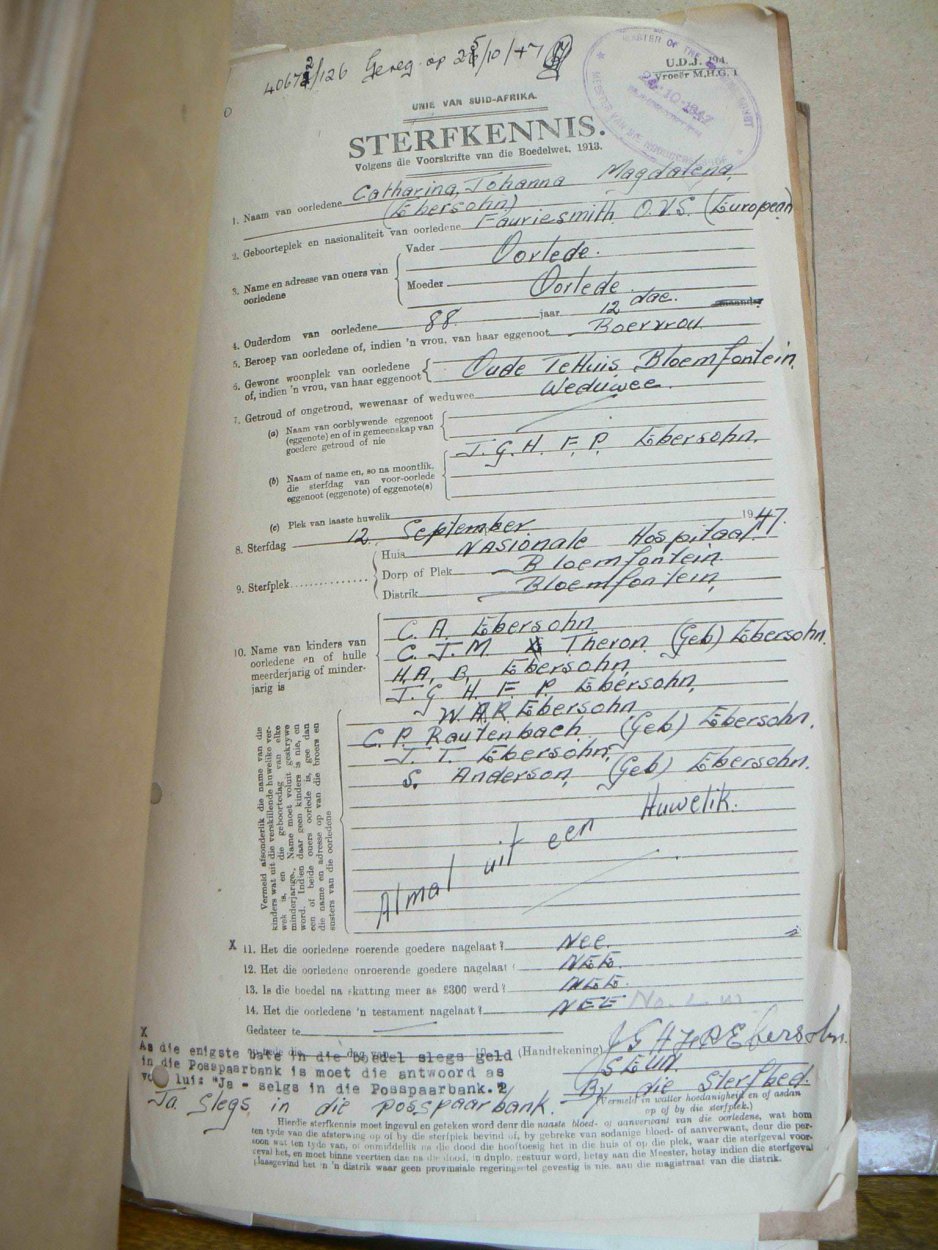 4067/126 Gereg. op 25/10/47
U.D.J. 294.
vroeër M.H.G. 1
MASTER OF THE
UNIE VAN SUID-AFRIKA.
STERFKENNIS.
Volgens die Voorskrifte van die Boedelwet, 1913.
1. Naam van oorledene Catharina, Johanna Magdalena,
(Ebersohn)
2. Geboorteplek en nasionaliteit van oorledene Fauriesmith O.V.S. (European)
3. Name en adresse van ouers van oorledene
Vader Oorlede.
Moeder Oorlede.
4. Ouderdom van oorledene 88 jaar 12 dae. maande
5. Beroep van oorledene of, indien 'n vrou, van haar eggenoot Boervrou
6. Gewone woonplek van oorledene of, indien 'n vrou, van haar eggenoot Oude TeHuis, Bloemfontein.
7. Getroud of ongetroud, wewenaar of weduwee Weduwee.
(a) Naam van oorblywende eggenoot (eggenote) en of in gemeenskap van goedere getroud of nie
(b) Naam of name en, so na moontlik, die sterfdag van voor-oorlede eggenoot (eggenote) of eggenote(s) J. G. H. F. P. Ebersohn.
(c) Plek van laaste huwelik
8. Sterfdag 12 September 1947.
9. Sterfplek
Huis Nasionale Hospitaal
Dorp of Plek Bloemfontein
Distrik Bloemfontein,
10. Name van kinders van oorledene en of hulle meerderjarig of minderjarig is
C. A. Ebersohn
C. J. M. Theron (Geb) Ebersohn.
H. A. B. Ebersohn,
J. G. H. F. P. Ebersohn,
W. A. R. Ebersohn
C. P. Rautenbach. (Geb) Ebersohn.
J. T. Ebersohn,
S. Anderson, (Geb) Ebersohn.
Vermeld afsonderlik die name van die
kinders wat uit die verskillende huwelike verwek
is, en die geboortedag van elke
minderjarige. Name moet voluit geskrywe
word. Indien daar geen kinders is nie, en
een of beide ouers oorlede is, gee dan
die name en adresse op van die broers en
susters van die oorledene
Almal uit een Huwelik.
X 11. Het die oorledene roerende goedere nagelaat? Nee.
12. Het die oorledene onroerende goedere nagelaat? NEE.
13. Is die boedel na skatting meer as £300 werd? NEE.
14. Het die oorledene 'n testament nagelaat? NEE
Gedateer te
(Handtekening) J G H F P Ebersohn.
X
As die enigste bate in die boedel slegs geld
in die Posspaarbank is moet die antwoord as
lui: "Ja - selgs in die Posspaarbank."
Ja. Slegs, in die posspaarbank.
By die Sterfbed.
(Vermeld in watter hoedanigheid en of aldan
op of by die sterfplek.)
Hierdie sterfkennis moet ingevul en geteken word deur die naaste bloed- of aanverwant van die oorledene, wat hom
ten tyde van die afsterwing op of by die sterfplek bevind of, by gebreke van sodanige bloed- of aanverwant, deur die persoon
wat ten tyde van, of onmiddellik na die dood die hooftoesig het in die huis of op die plek, waar die sterfgeval voorgeval
het, en moet binne veertien dae na die dood, in duplo, gestuur word, hetsy aan die Meester, hetsy indien die sterfgeval
plaasgevind het in 'n distrik waar geen provinsiale regeringsetel gevestig is nie, aan die magistraat van die distrik.